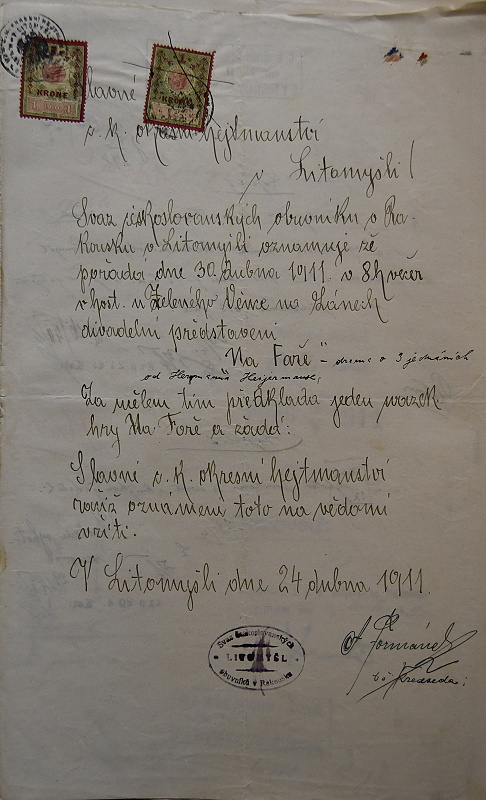 1 KRONE
1 KRONE
Slavné
c. k. okresní hejtmanství
v Litomyšli!
Svaz českoslovanských obuvníku v Ra-
kousku v Litomyšli oznamuje že
pořada dne 30. dubna 1911. v 8 h večer
v host. u Zeleného Věnce na Lánech
divadelní představení
"Na Faře" - drama o 3 jednáních
od Hermanna Heijermanse,
Za učelem tím předklada jeden vyazek
hry Na Faře a žádá:
Slavné c. k. okresní hejtmanství
račiž oznámení toto na vědomí
vzíti.
V Litomyšli dne 24 dubna 1911.
Svaz českoslovanských
LITOMYŠL
obuvníků v Rakousku
Formánek
předseda: